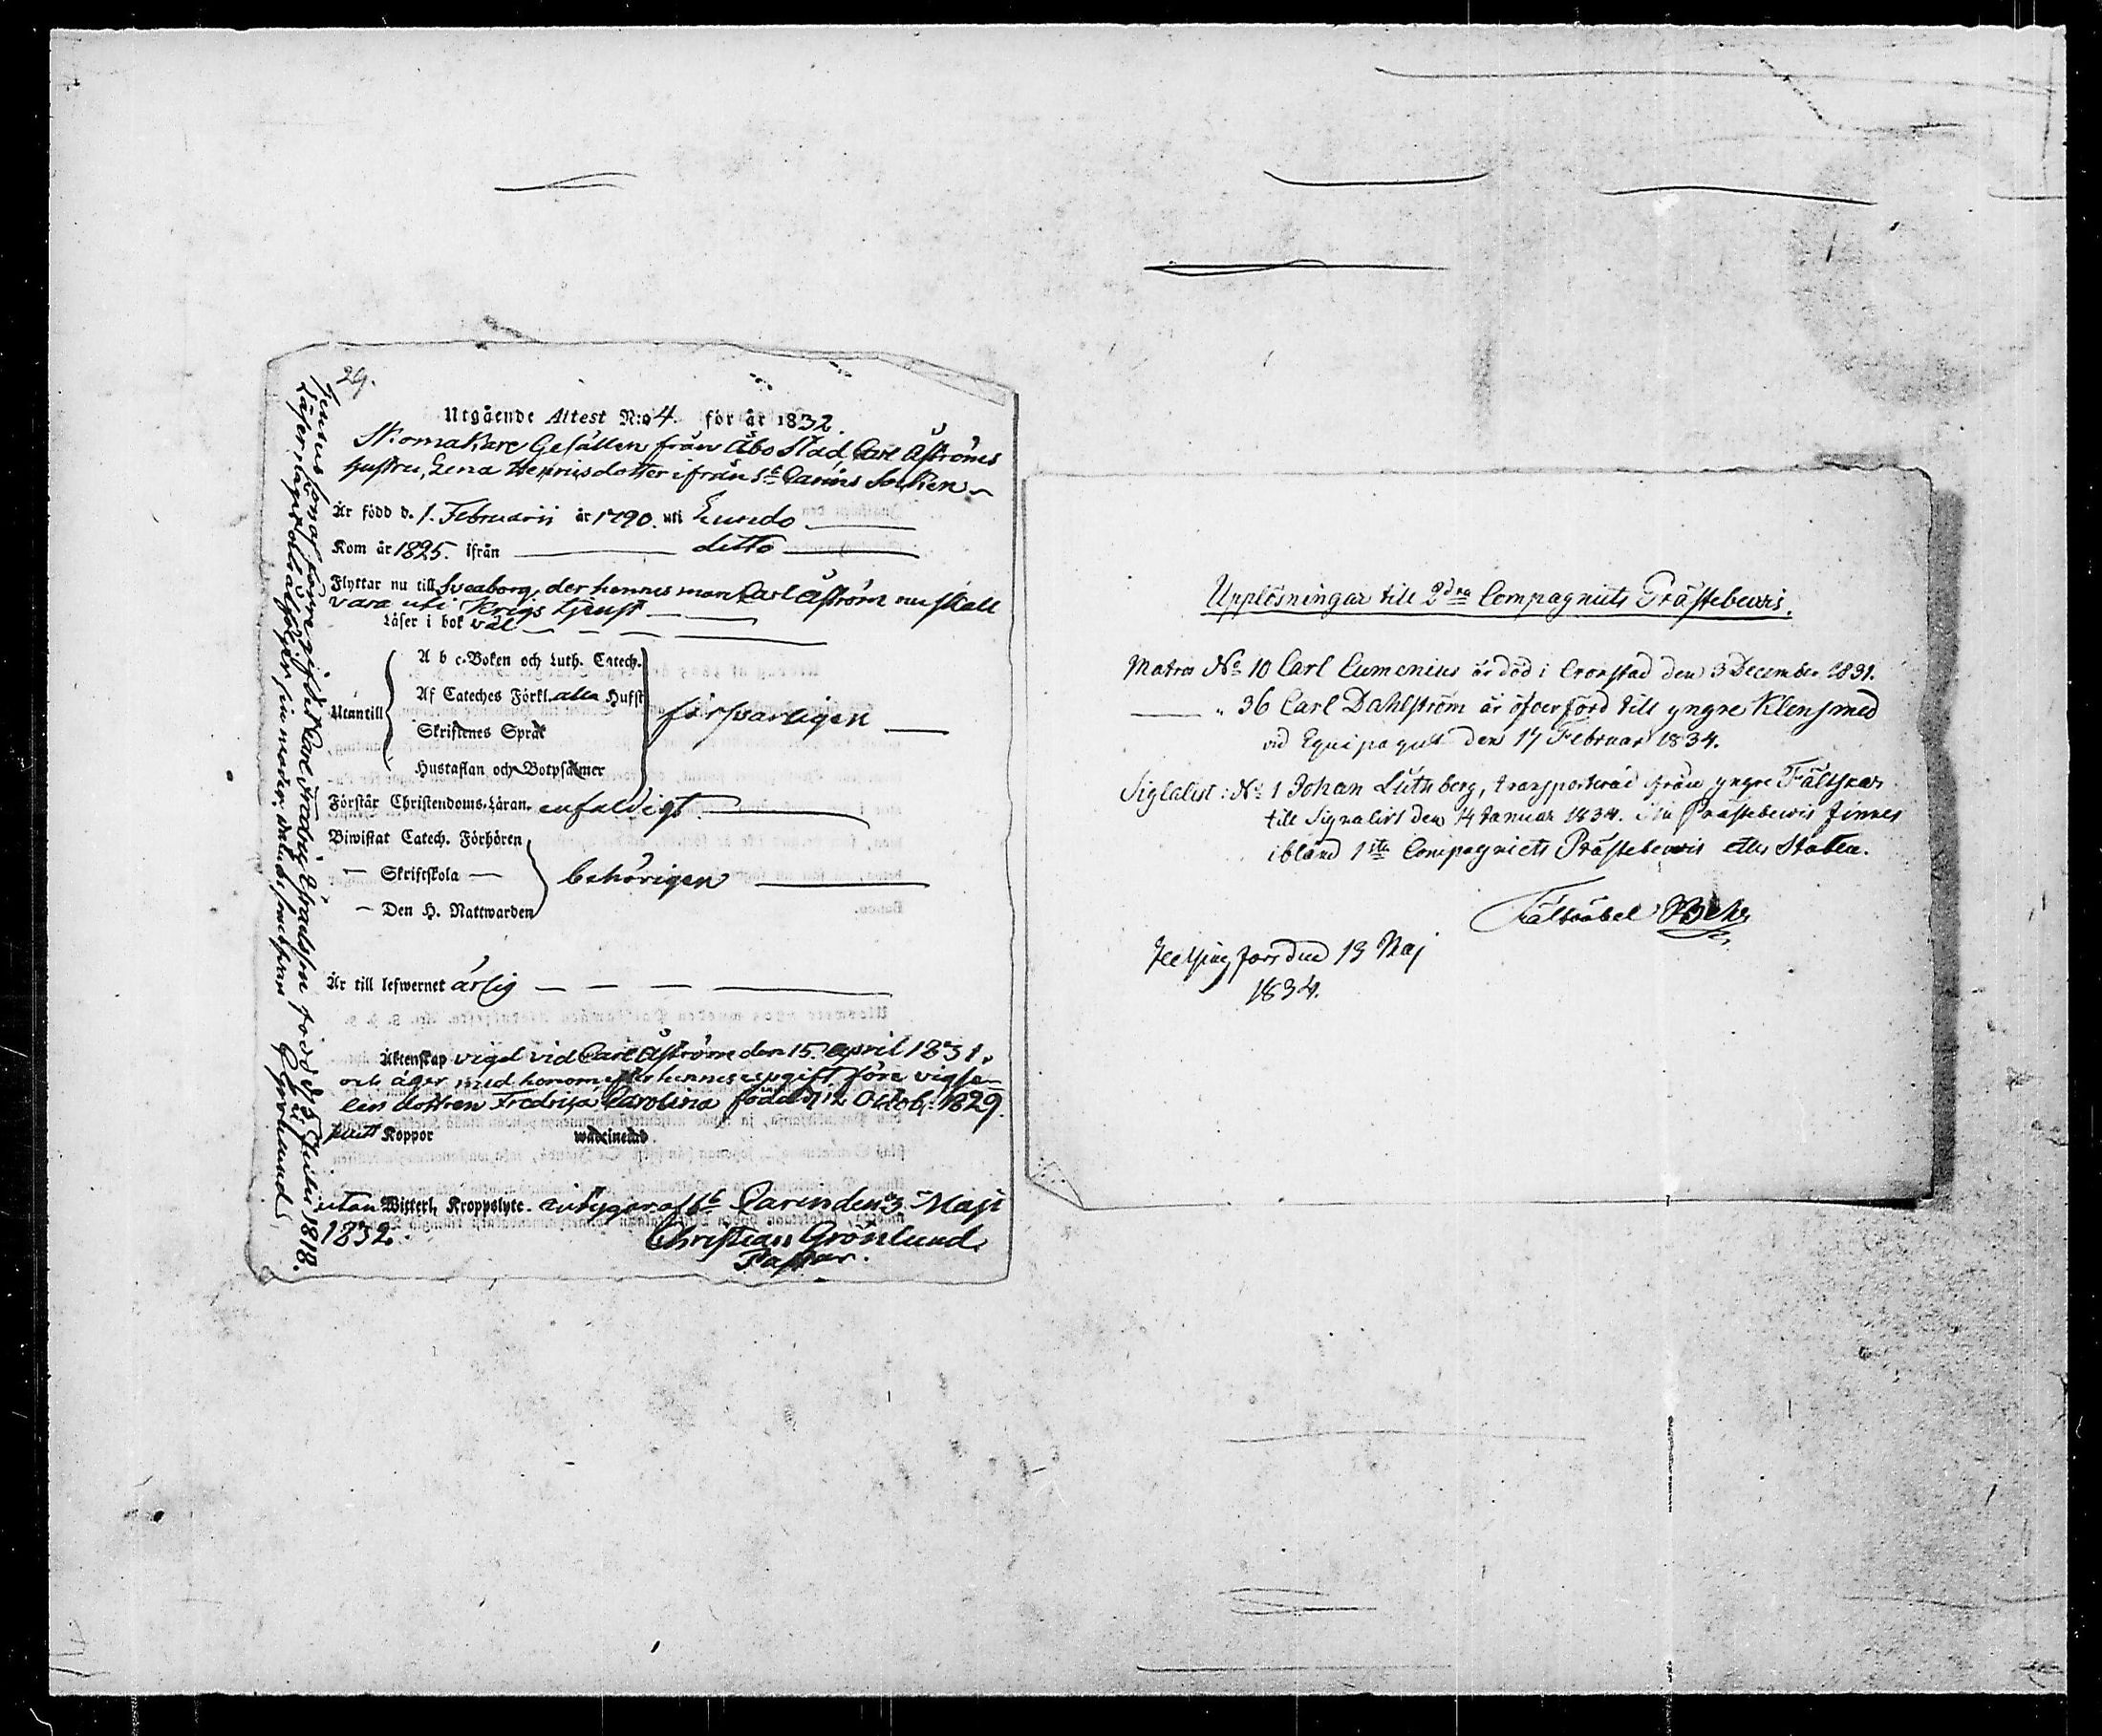 29.
Utgående Attest N:o 4. för år 1832.
Skomakare Gesällen från Åbo Stad, Carl Åströms
hustru, Lena Henriksdotter ifrån S:t Carins Socken
Är född d. 1. Februarii år 1790. uti Lundo
Kom år 1825. ifrån ditto
Flyttar nu till Sveaborg, der hennes man Carl Åström nu skall
vara uti Krigs tjenst
Läser i bok väl
Utantill
A b c-Boken och Luth. Catech.
Af Cateches Förkl. alla Hufst
Skriftenes Språk
Hustaflan och Botpsalmer
försvarligen
Förstår Christendoms-Läran. enfaldigt
Biwistat Catech. Förhören
— Skriftskola —
— Den H. Nattwarden
behörigen
Är till lefwernet ärlig
Äktenskap vigd vid Carl Åström den 15. April 1831.
och äger med honom efter hennes uppgift före vigse-
len dottren Fredrika Carolina född d. 12 Octob. 1829.
haft Koppor waccinerad
utan Witterl. Kroppslyte. intygar af S:t Carin den 3. Maji
1832.
Christian Grönlund.
Pastor.
Hennes son af förra giftet Carl Fredric född d. 5 1818.
Läser följer sin moder
C Grönlund
Upplösningar till 2dra Compagniets Prästebevis.
Matros No 10 Carl Cumenius är död i Cronstad den 3 December 1831.
" 36 Carl Dahlström är öfverförd till yngre Klensmed
vid Equipaget den 17 Februar 1834.
Siglalist: No 1 Johan Lithberg, transporterad från yngre Fältskär
till Signalist den 14 Januar 1834. Prästebevis finnes
ibland 1sta Compagniets Prästebevis eller Staben.
Fältväbel
Helsingfors den 13 Maj
1834.